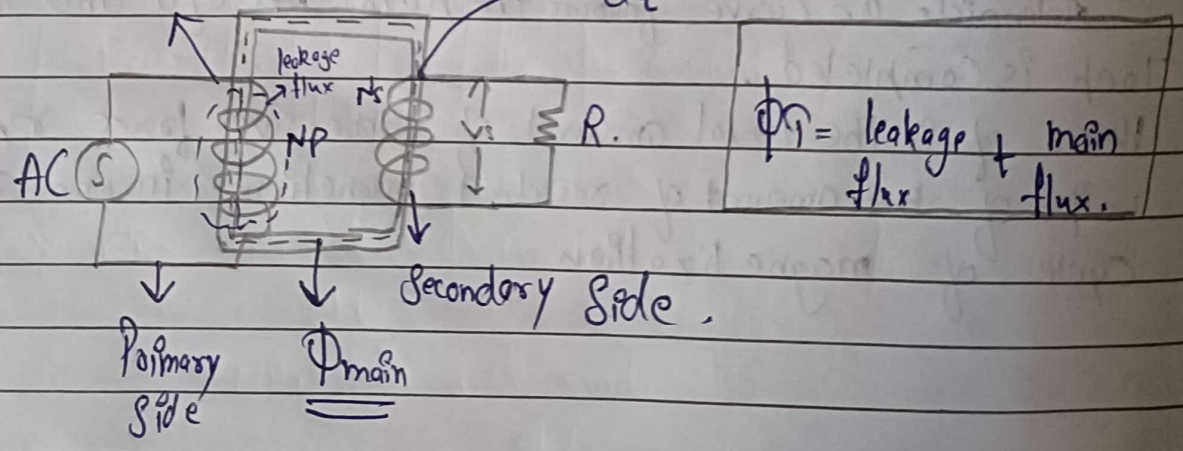 leakage
flux
Ns
NP
Vs
R.
AC S
ΦT = leakage + main
flux flux.
Secondary Side.
Primary
Side
Φmain